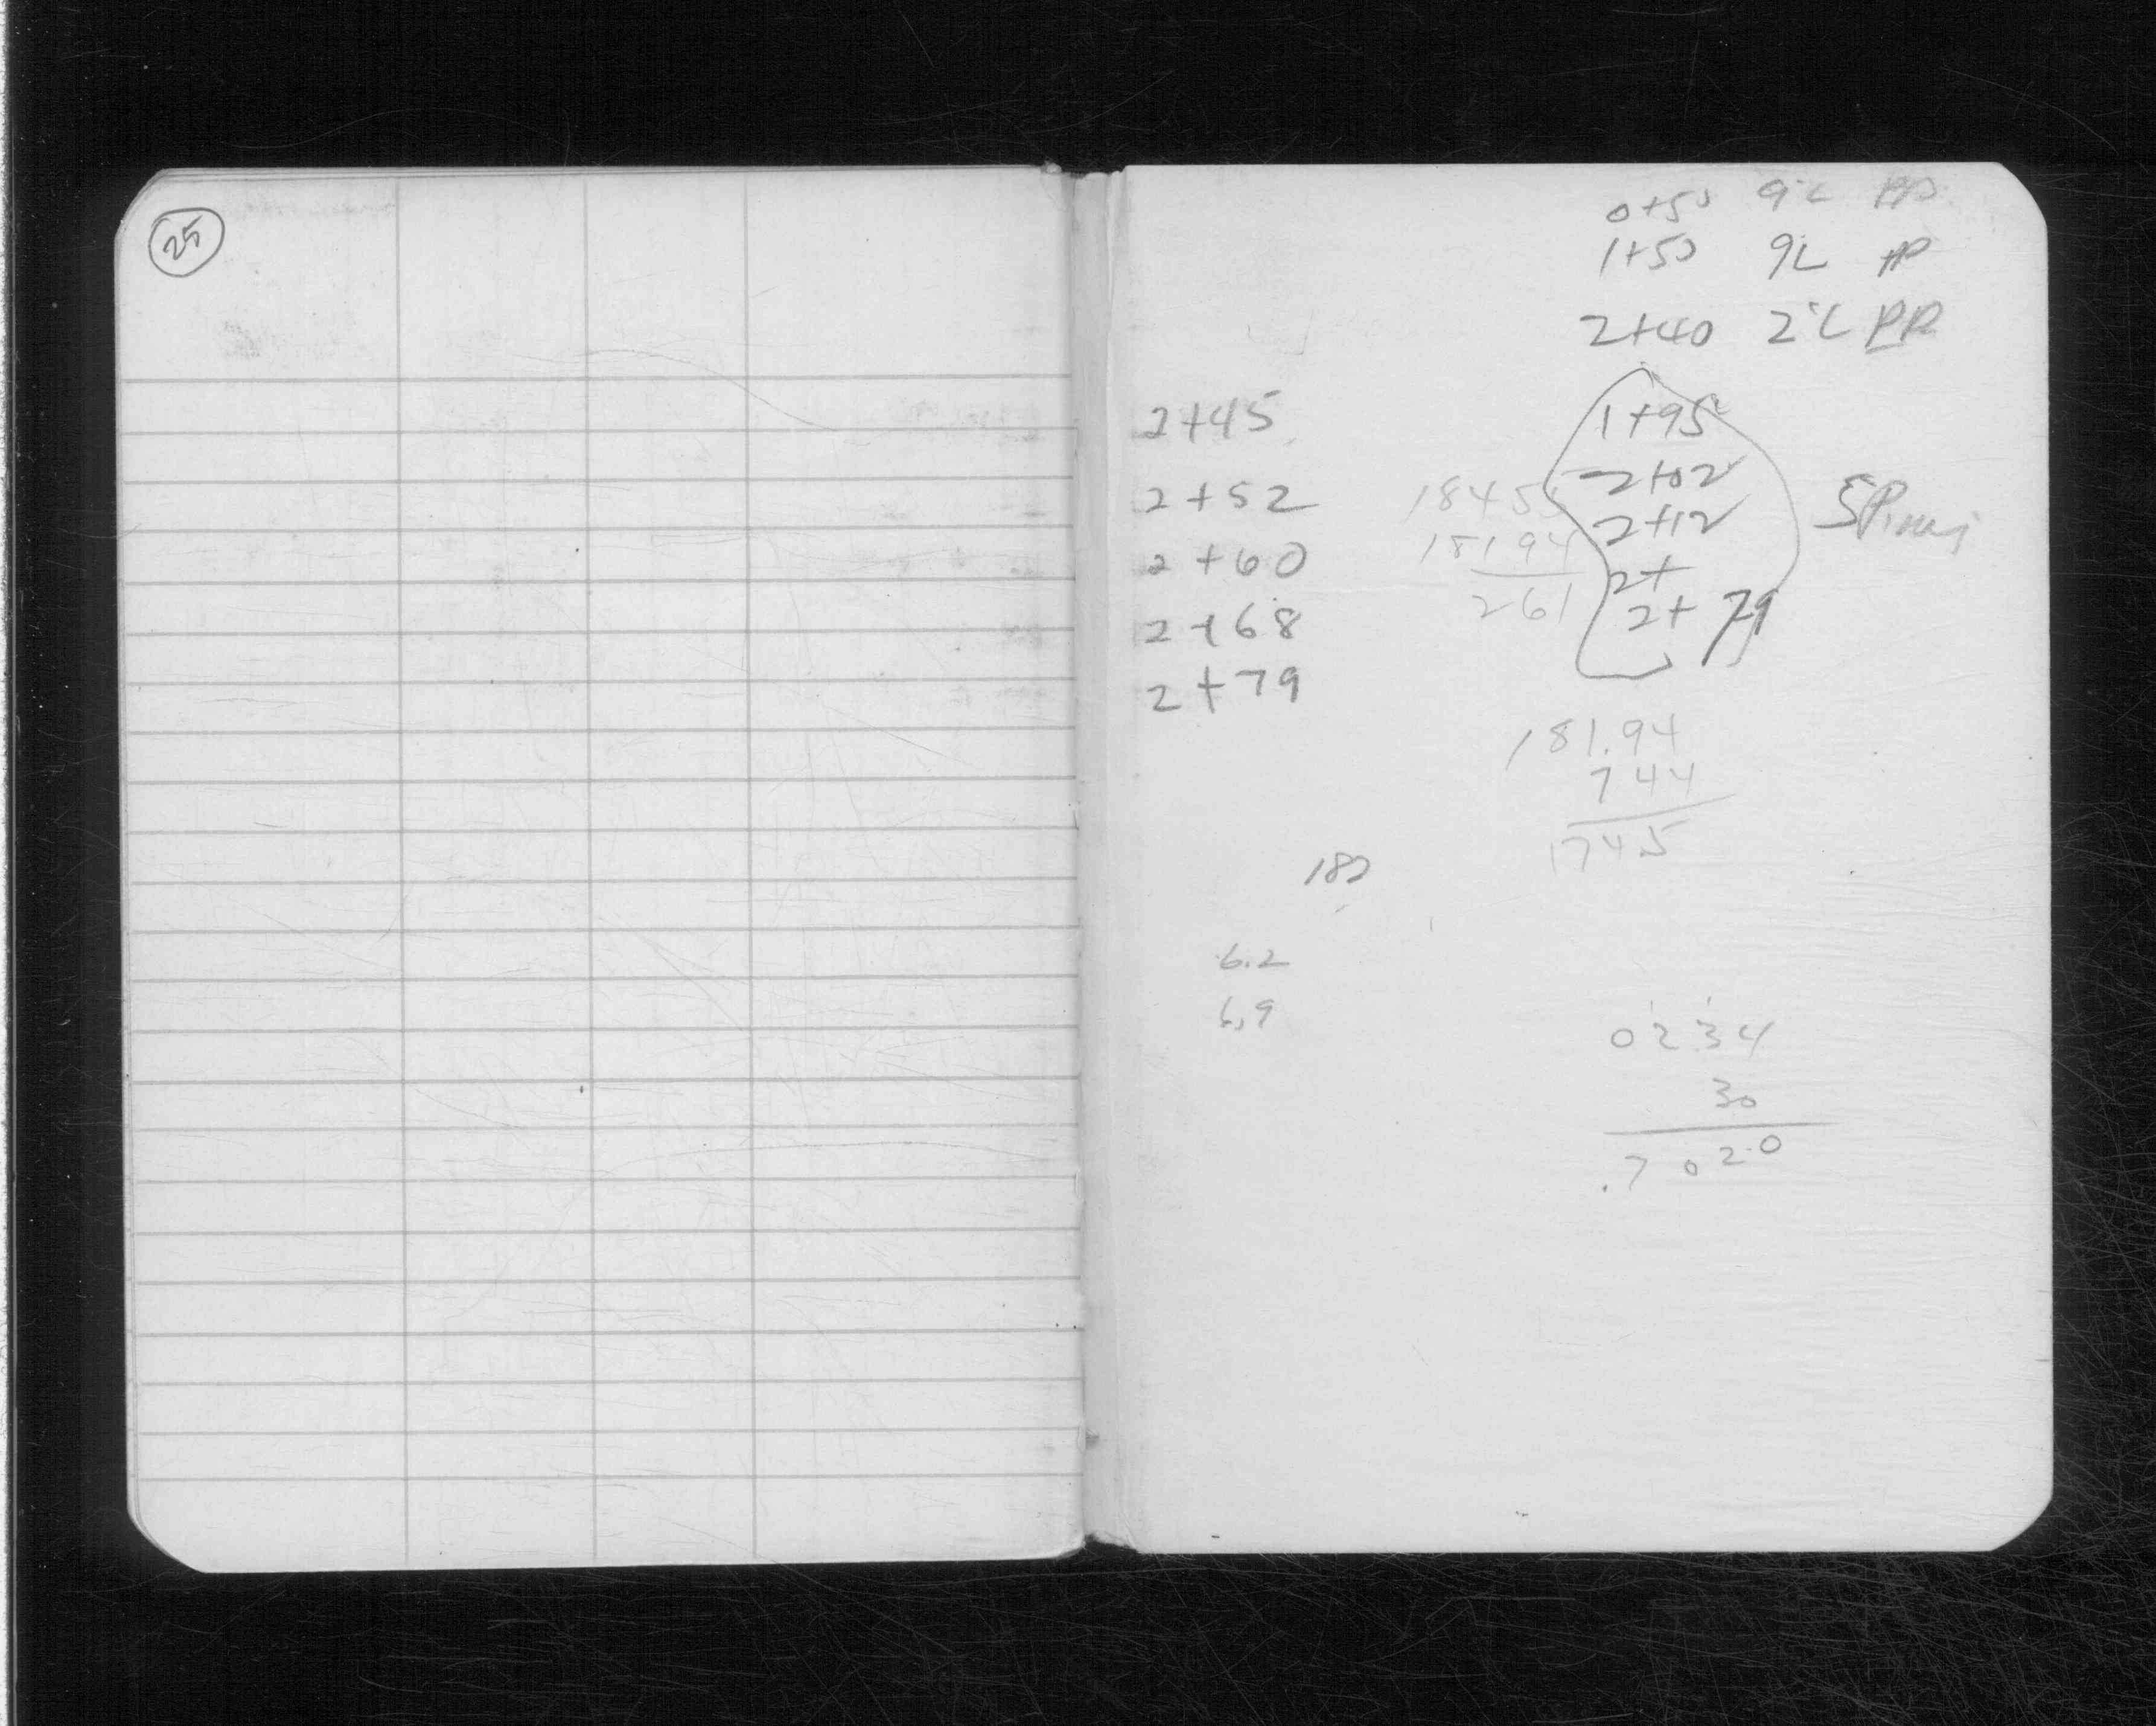 25
0+50 9'L PP
1+50 9L PP
2+40 2'L PP
2+45
2+52
2+60
2+68
2+79
1+95
2+02
2+12
2+
2+ 79
18455
18194
261
181.94
744
1745
182
6.2
6.9
0234
30
.7020